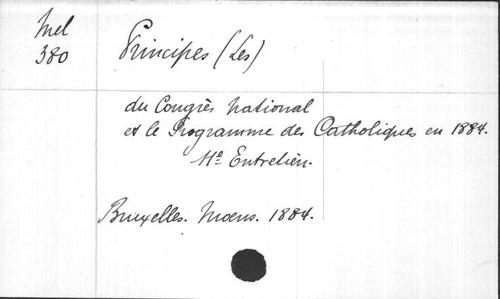 Mel
380
Principes (Les)
du Congrès national
et le Programme des Catholiques en 1884.
11e Entretien.
Bruxelles. Moens. 1884.